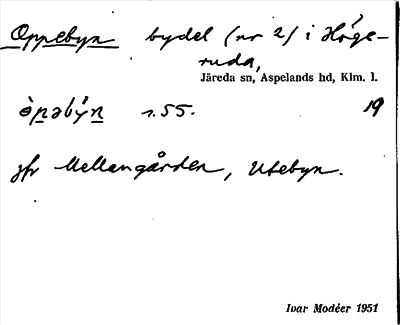 Oppebyn bydel (nr 2) i Höge-
ruda,
Järeda sn, Aspelands hd, Klm. l.
òpəbẏ́n r. 55. 19
jfr Mellangården, Utebyn.
Ivar Modéer 1951